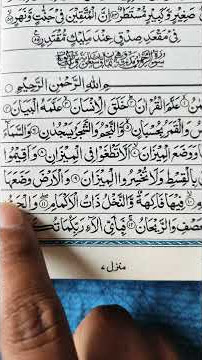 صَغِيرٍ وَّكَبِيرٍ مُّسْتَطَرٌ ۝ اِنَّ الْمُتَّقِينَ فِي جَنّٰتٍ وَّنَهَرٍ ۝
فِي مَقْعَدِ صِدْقٍ عِنْدَ مَلِيكٍ مُّقْتَدِرٍ ۝
بِسْمِ اللهِ الرَّحْمٰنِ الرَّحِيمِ
عَلَّمَ الْقُرْاٰنَ ۝ خَلَقَ الْاِنْسَانَ ۝ عَلَّمَهُ الْبَيَانَ ۝
وَالْقَمَرُ بِحُسْبَانٍ ۝ وَّالنَّجْمُ وَالشَّجَرُ يَسْجُدٰنِ ۝ وَالسَّمَآءَ
وَوَضَعَ الْمِيزَانَ ۝ اَلَّا تَطْغَوْا فِي الْمِيزَانِ ۝ وَاَقِيمُوا
بِالْقِسْطِ وَلَا تُخْسِرُوا الْمِيزَانَ ۝ وَالْاَرْضَ وَضَعَهَا
فِيهَا فَاكِهَةٌ وَّالنَّخْلُ ذَاتُ الْاَكْمَامِ ۝ وَالْحَبُّ
الْعَصْفِ وَالرَّيْحَانُ ۝ فَبِاَيِّ اٰلَآءِ رَبِّكُمَا
منزل ٧